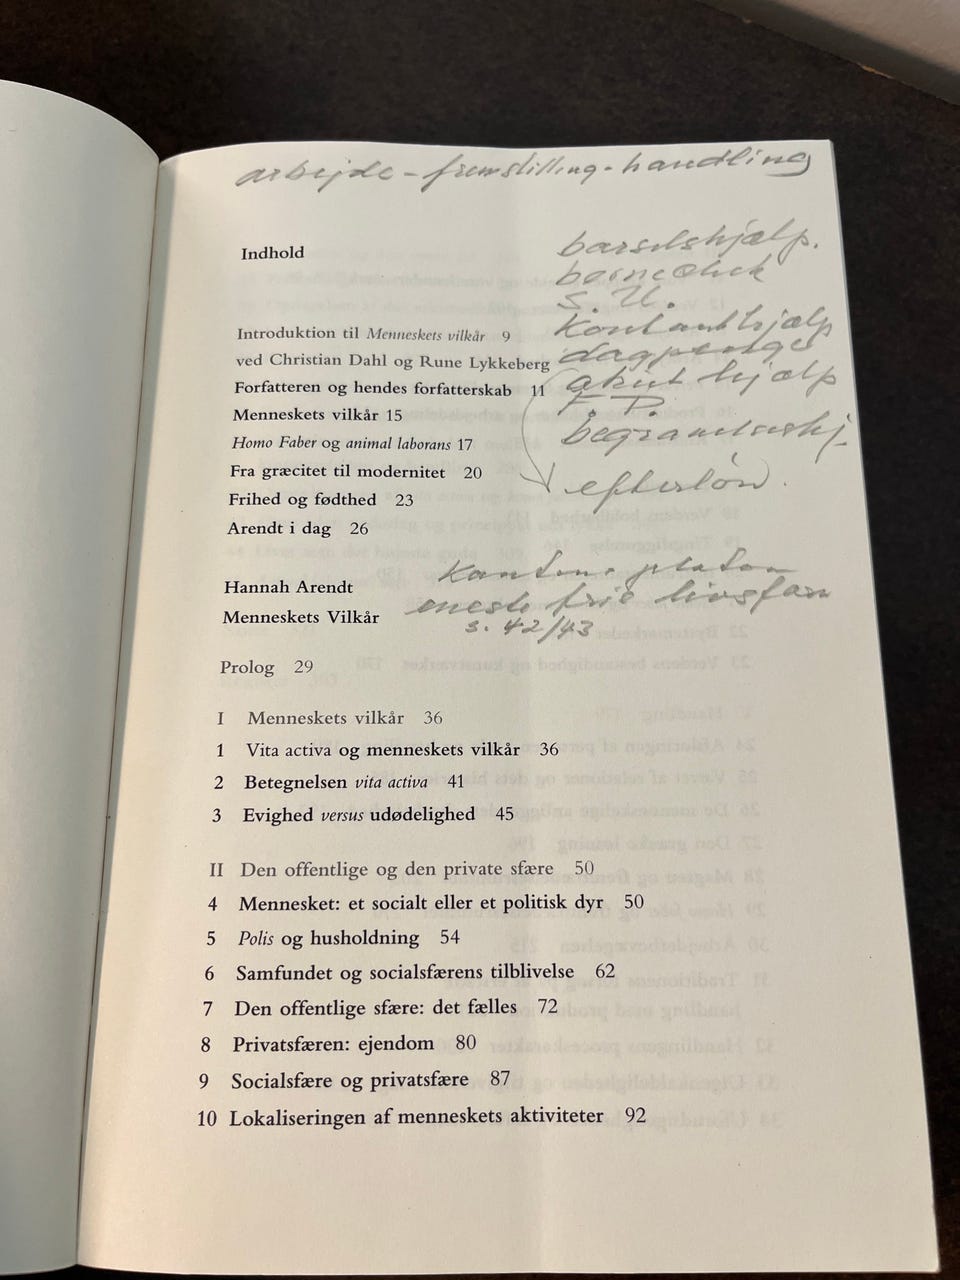 arbejde - fremstilling - handling
Indhold
barselshjælp.
børnecheck
S. U.
kontanthjælp
dagpenge
akut hjælp
F. P.
begravelseshj.
efterløn.
Introduktion til Menneskets vilkår 9
ved Christian Dahl og Rune Lykkeberg
Forfatteren og hendes forfatterskab 11
Menneskets vilkår 15
Homo Faber og animal laborans 17
Fra græcitet til modernitet 20
Frihed og fødthed 23
Arendt i dag 26
Hannah Arendt
Menneskets Vilkår
platon
eneste frie livsform
s. 42/43
Prolog 29
I Menneskets vilkår 36
1 Vita activa og menneskets vilkår 36
2 Betegnelsen vita activa 41
3 Evighed versus udødelighed 45
II Den offentlige og den private sfære 50
4 Mennesket: et socialt eller et politisk dyr 50
5 Polis og husholdning 54
6 Samfundet og socialsfærens tilblivelse 62
7 Den offentlige sfære: det fælles 72
8 Privatsfæren: ejendom 80
9 Socialsfære og privatsfære 87
10 Lokaliseringen af menneskets aktiviteter 92